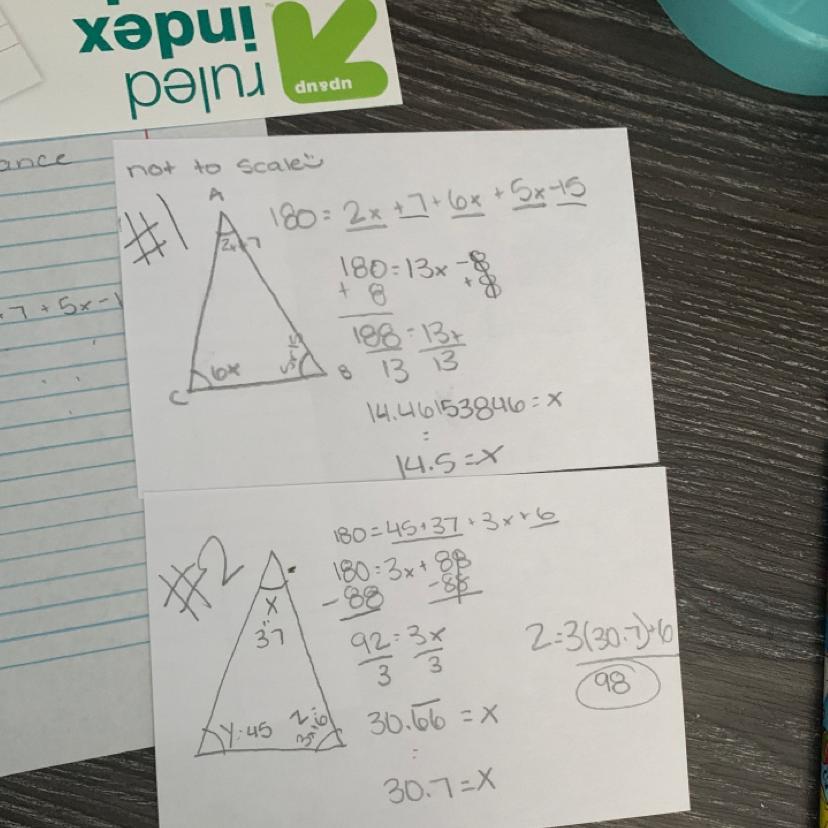 ruled
index
upsup
ance
.7 + 5x - 1
not to scale
#1
A
2x+7
6x
5x-15
C
B
180 = 2x + 7 + 6x + 5x - 15
180 = 13x - 8
+ 8 + 8
188 = 13x
13 13
14.46153846 = x
14.5 = x
#2
x
37
y: 45
z:
3x+6
180 = 45 + 37 + 3x + 6
180 = 3x + 88
- 88 - 88
92 = 3x
3 3
30.66 = x
30.7 = x
z = 3(30.7) + 6
98